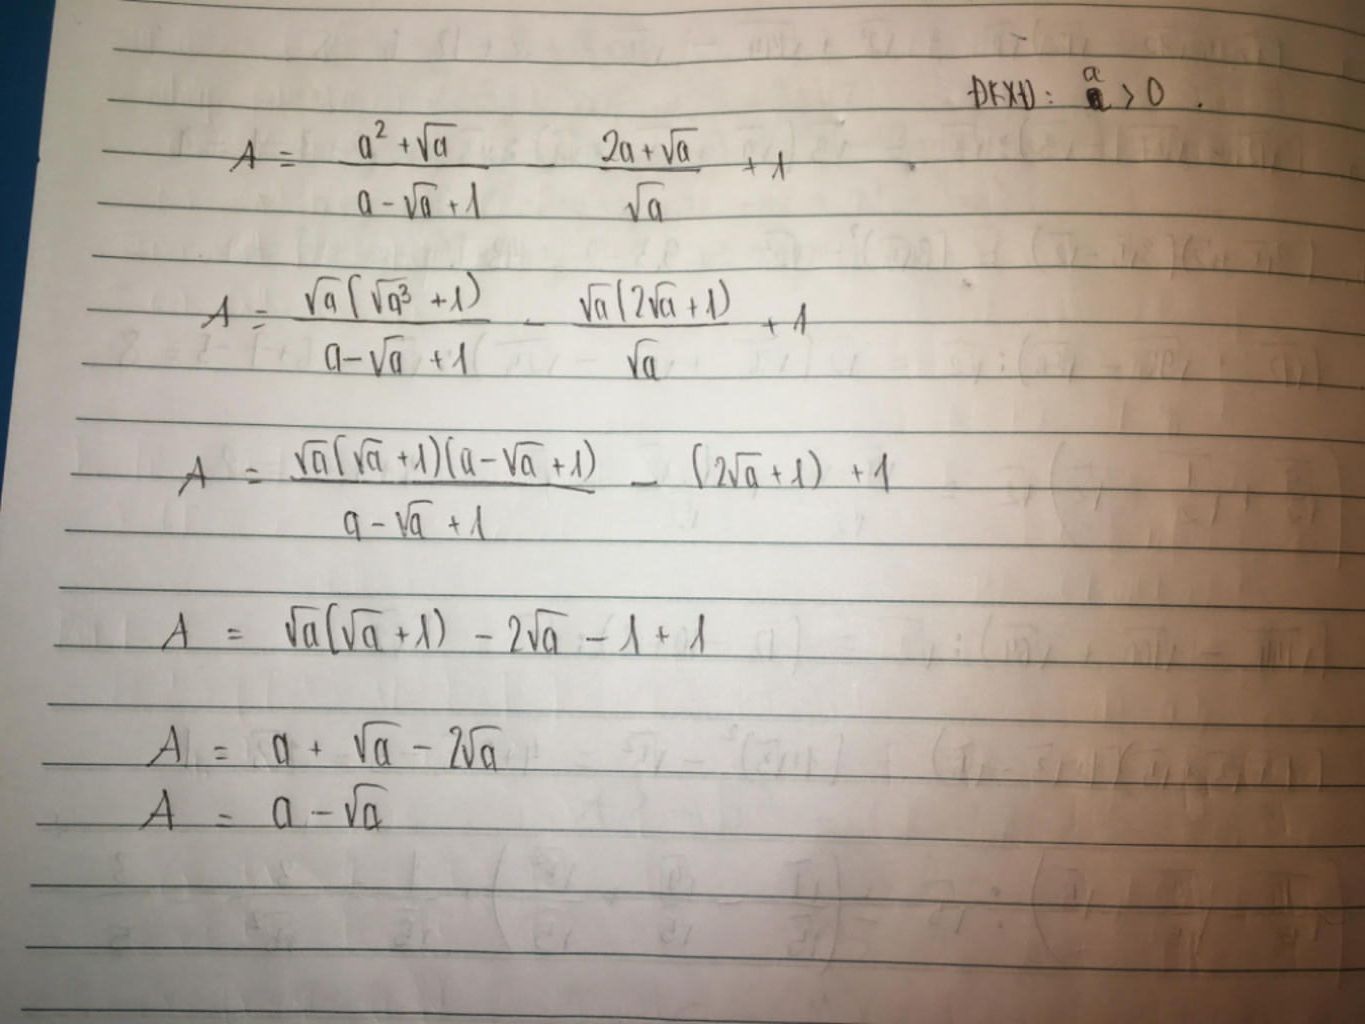 ĐKXĐ: a > 0.
A = \frac{a² + √a}{a - √a + 1} - \frac{2a + √a}{√a} + 1
A = \frac{√a(√a³ + 1)}{a - √a + 1} - \frac{√a(2√a + 1)}{√a} + 1
A = \frac{√a(√a + 1)(a - √a + 1)}{a - √a + 1} - (2√a + 1) + 1
A = √a(√a + 1) - 2√a - 1 + 1
A = a + √a - 2√a
A = a - √a